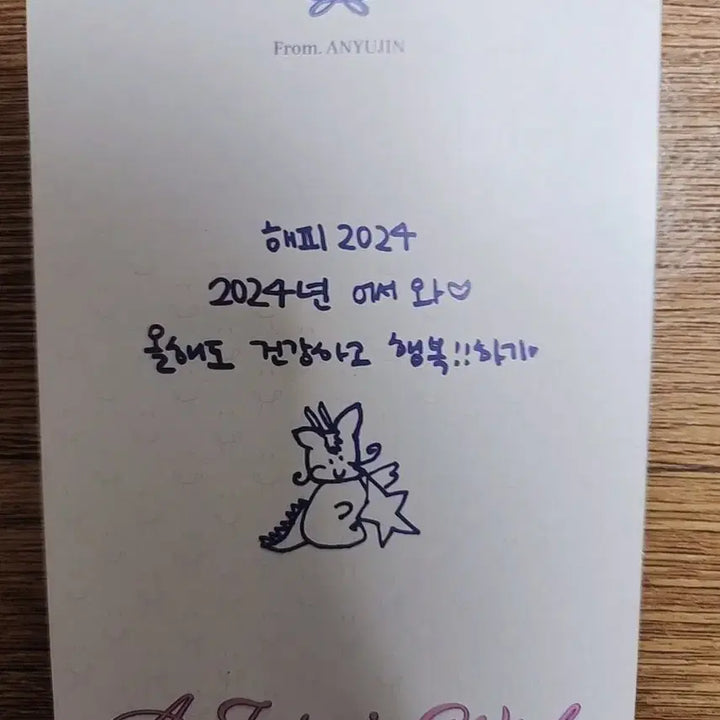 From. ANYUJIN
해피 2024
2024년 어서 와♡
올해도 건강하고 행복!!하기♥